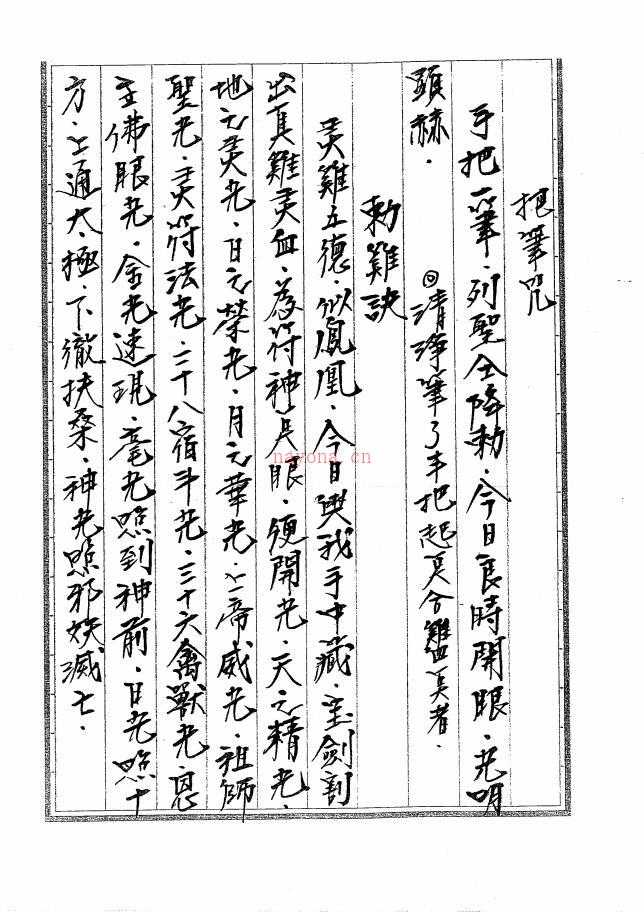 把筆咒
手把一筆．列聖仝降勅．今日良時開眼．光明
顕赫．
◎清淨筆了手把起
勅雞訣
灵雞五德．似鳳凰．今日與我手中藏．宝劍割
出真雞灵血．為符神点眼．便開光．天之精光．
地之灵光．日之榮光．月之華光．上帝威光．祖師
聖光．灵符法光．二十八宿斗光．三十六禽獸光．恩
主佛眼光．金光速現．毫光照到神前．日光照十
方．上通太極．下徹扶桑．神光照邪妖滅亡．
nayona.cn